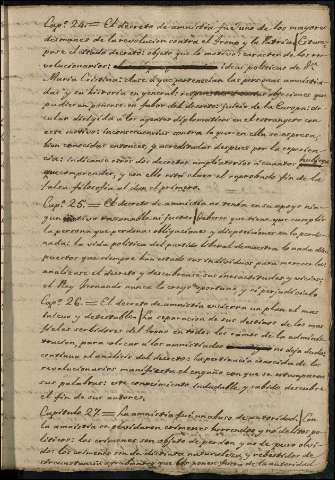 Cap.º 24. = El decreto de amnistía fué uno de los mayores
desmanes de la revolucion contra el trono y la Patria:
pone el citado decreto: objeto que lo motivó: caracter de los re-
volucionarios: ideas políticas de D.ª
María Cristina: clase á que pertenecian las personas amnistia-
das y su historia en general: objeciones que
pudieran ponerse en fabor del decreto: juicio de la Europa: cir-
cular dirigida á los agentes diplomaticos en el estrangero con
este motivo: inconsecuencias contra lo que en ella se espresa,
bien conocidas entonces, y acreditadas despues por la esperien-
cia: indicanse otros dos decretos ampliatorios á cuantos
comprender, y con ello está claro el reprobado fin de la
falsa filosofia al dar el primero.
Cap.º 25. = El decreto de amnistia no tenia en su apoyo nin-
gun motivo razonable ni justo: deberes que tiene que cumplir
la persona que perdona: obligaciones y disposiciones en la perdo-
nada: la vida politica del partido liberal demuestra lo nada dis-
puestos que siempre han estado sus individuos para merecerla:
analizase el decreto y descubrense sus inexactitudes y vicios:
el Rey Fernando nunca le creyó oportuno y sí perjudicial.
Cap.º 26. = El decreto de amnistia encierra un plan el mas
taluco y detestable: la separacion de sus destinos de los mas
fieles servidores del trono en todos los ramos de la adminis-
tracion, para colocar á los amnistiados no deja duda:
continua el análisis del decreto: la pertinacia conocida de los
revolucionarios manifiesta el engaño con que se estamparon
sus palabras: este conocimiento indudable y sabido descubre
el fin de sus autores.
Capitulo 27. = La amnistia fué un abuso de autoridad: Con
la amnistia se olvidaron crimenes horrendos y no delitos po-
liticos: los crimenes son objeto de perdon y no de puro olvi-
do: los cometidos son de distinta naturaleza y revestidos de
circunstancias agravantes que los ponen fuera de la autoridad